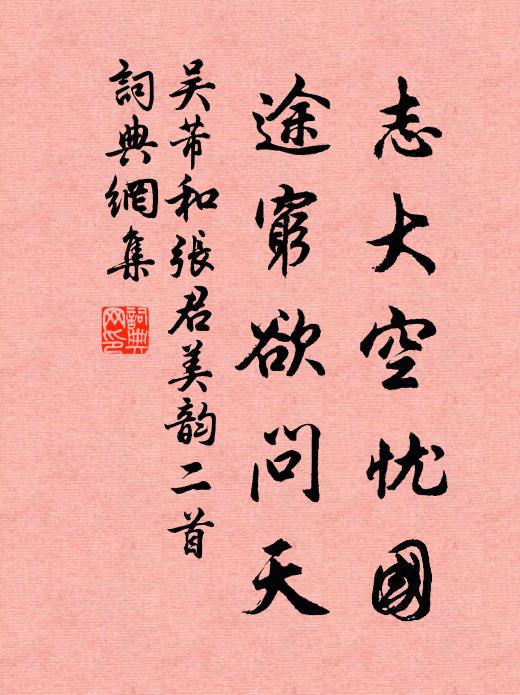 志大空忧國
途窮欲问天
吴芾和張君美韵二首
詞典網集
詞典网印